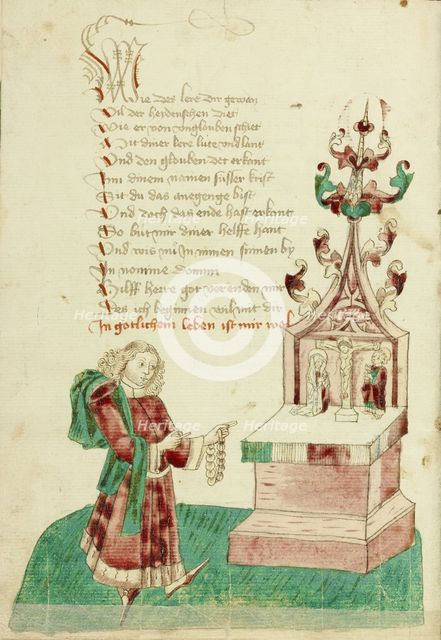 Wie des lere dir gewan
Vil der heidenschen diet
Wie er von vnglouben schiet
Mit diner lere lute vnd lant
Vnd den glouben det erkant
Inn dinem namen susser krist
Sit du das anegenge bist
Vnd doch das ende hast erkant
So but mir diner helffe hant
Vnd wis mir in minen sinnen by
In nomine domini
Hilff herre got
Des ich beginnen wil mit dir
In gotlichem leben ist mir wol
Heritage
Heritage
Heritage
Heritage
Heritage